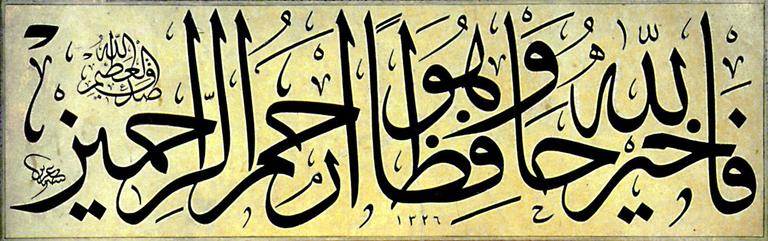 فالله خير حافظا وهو ارحم الراحمين
صدق الله العظيم
١٢٢٦